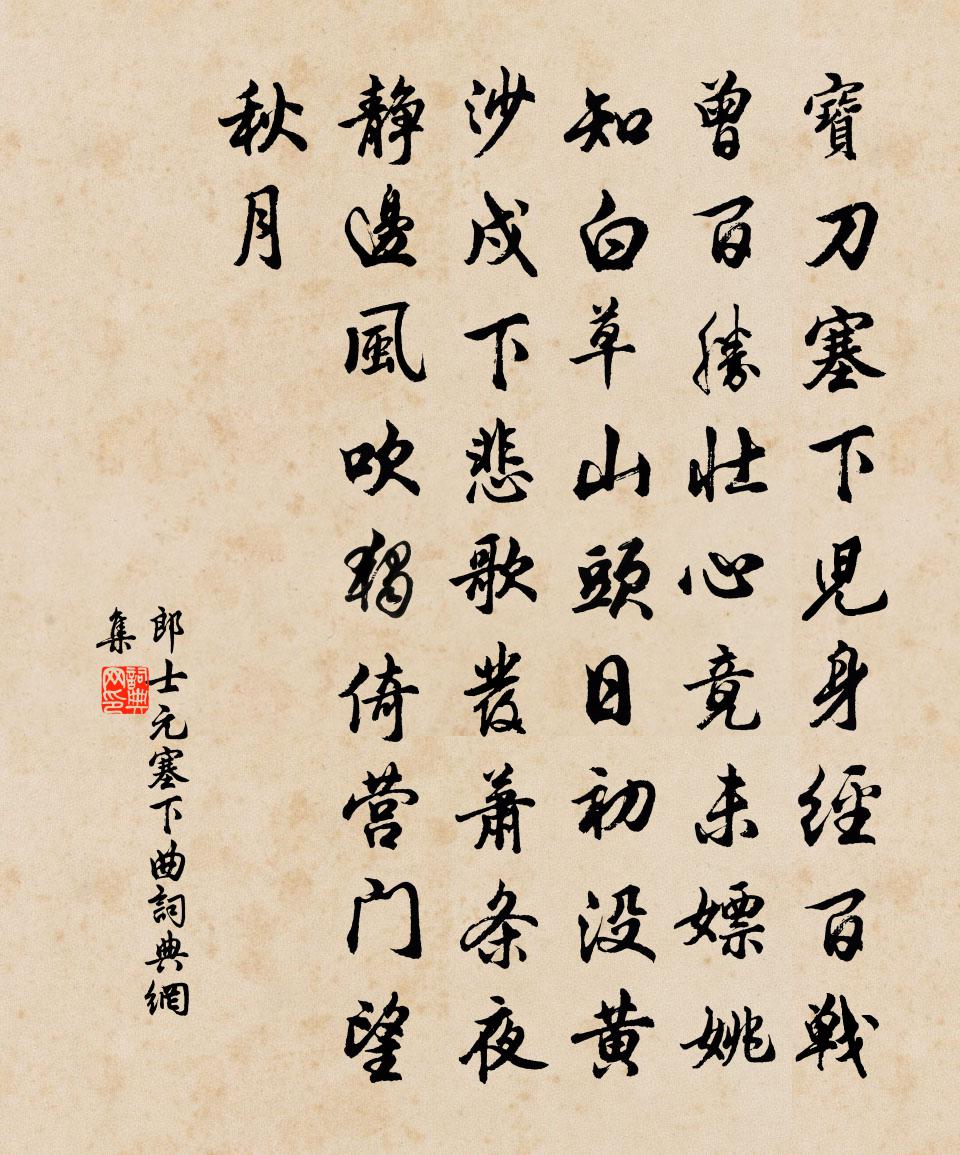 寶刀塞下児身經百戦
曾百勝壮心竟未嫖姚
知白草山頭日初没黄
沙戍下悲歌發萧条夜
静邊風吹獨倚营门望
秋月
郎士元塞下曲詞典網
集
詞典
网印